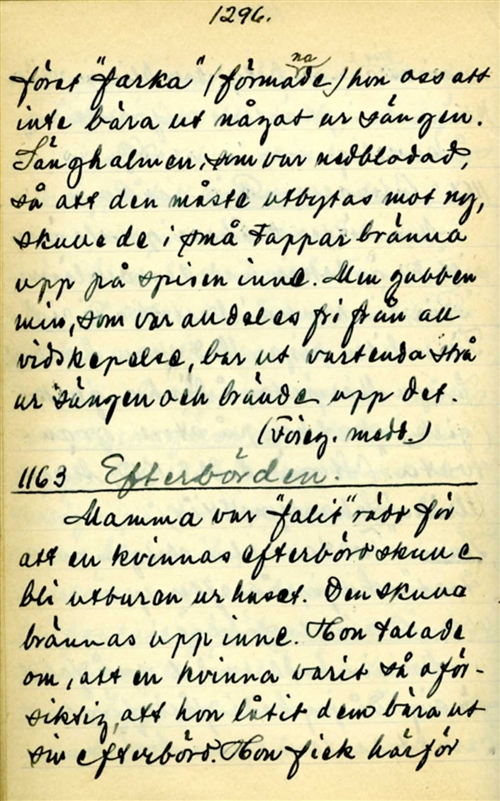 1296.
först "farka" (förmanade) hon oss att
inte bära ut något ur sängen.
Sänghalmen, som var nedblodad,
så att den måste utbytas mot ny,
skulle de i små tappar bränna
upp på spisen inne. Men gubben
min, som var alldeles fri från all
vidskepelse, bar ut vartenda strå
ur sängen och brände upp det.
(Föreg. medd.)
1163 Efterbörden.
Mamma var "falit" rädd för
att en kvinnas efterbörd skulle
bli utburen ur huset. Den skulle
brännas upp inne. Hon talade
om, att en kvinna varit så oför-
siktig, att hon låtit dem bära ut
sin efterbörd. Hon fick härför